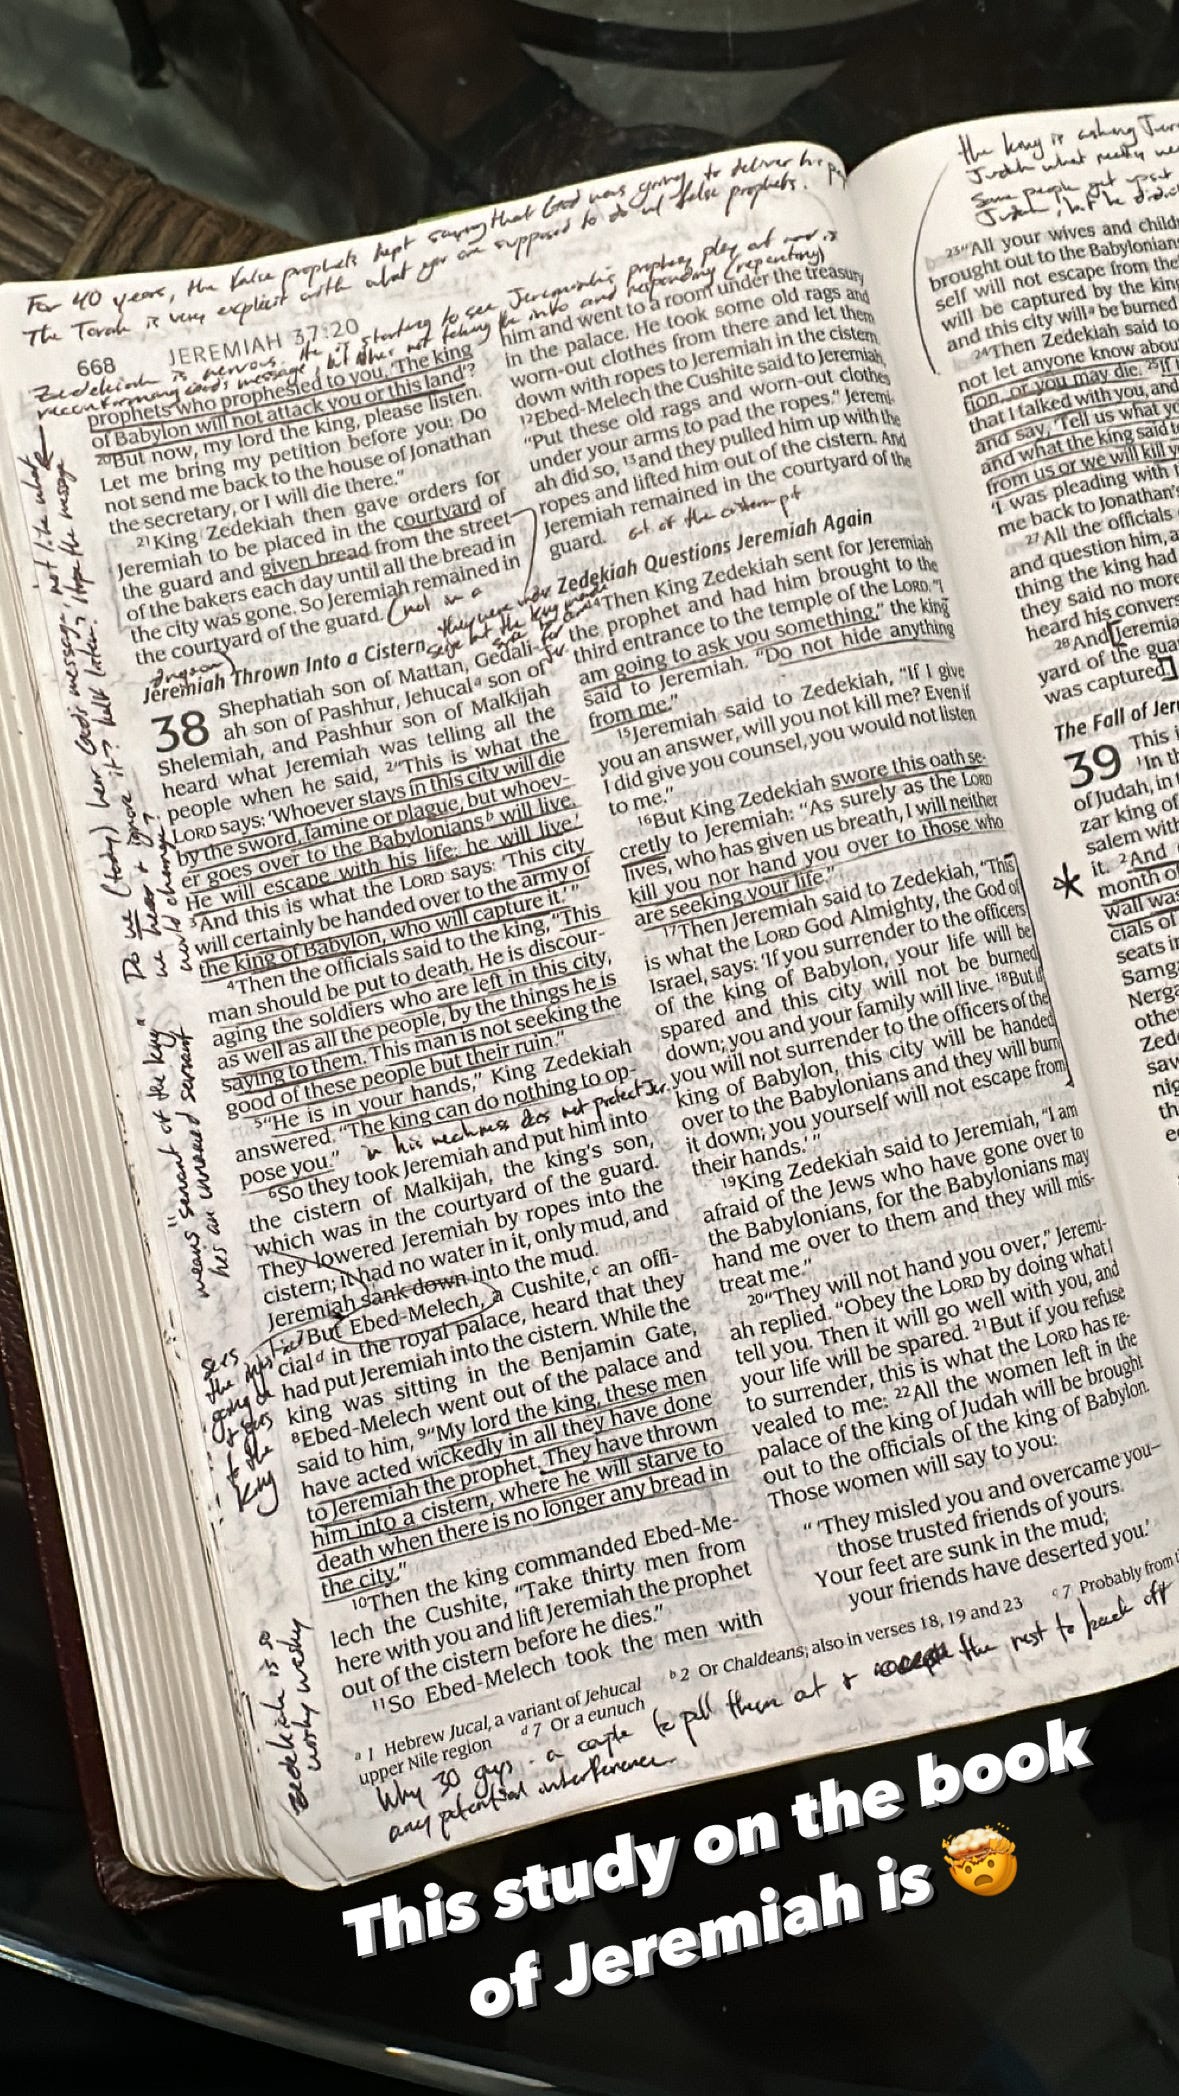 For 40 years, the false prophets kept saying that God was going to deliver his
The Torah is very explicit with what you are supposed to do w/ false prophets.
668 JEREMIAH 37:20
Zedekiah is nervous. He is starting to see Jeremiah's prophecy play out now is
reconfirming God's message, but does not taking the info and responding (repenting)
prophets who prophesied to you, 'The king
of Babylon will not attack you or this land'?
20But now, my lord the king, please listen.
Let me bring my petition before you: Do
not send me back to the house of Jonathan
the secretary, or I will die there."
21King Zedekiah then gave orders for
Jeremiah to be placed in the courtyard of
the guard and given bread from the street
of the bakers each day until all the bread in
the city was gone. So Jeremiah remained in
the courtyard of the guard. (not in a
dungeon)
Jeremiah Thrown Into a Cistern
they were under
siege but the king made
sure
for
Jer.
38 Shephatiah son of Mattan, Gedali-
ah son of Pashhur, Jehucala son of
Shelemiah, and Pashhur son of Malkijah
heard what Jeremiah was telling all the
people when he said, 2"This is what the
LORD says: 'Whoever stays in this city will die
by the sword, famine or plague, but whoev-
er goes over to the Babyloniansb will live.
He will escape with his life; he will live.'
3And this is what the LORD says: 'This city
will certainly be handed over to the army of
the king of Babylon, who will capture it.'"
4Then the officials said to the king, "This
man should be put to death. He is discour-
aging the soldiers who are left in this city,
as well as all the people, by the things he is
saying to them. This man is not seeking the
good of these people but their ruin."
5"He is in your hands," King Zedekiah
answered. "The king can do nothing to op-
pose you." in his weakness does not protect Jer.
6So they took Jeremiah and put him into
the cistern of Malkijah, the king's son,
which was in the courtyard of the guard.
They lowered Jeremiah by ropes into the
cistern; it had no water in it, only mud, and
Jeremiah sank down into the mud.
7But Ebed-Melech, a Cushite,c an offi-
ciald in the royal palace, heard that they
had put Jeremiah into the cistern. While the
king was sitting in the Benjamin Gate,
8Ebed-Melech went out of the palace and
said to him, 9"My lord the king, these men
have acted wickedly in all they have done
to Jeremiah the prophet. They have thrown
him into a cistern, where he will starve to
death when there is no longer any bread in
the city."
10Then the king commanded Ebed-Me-
lech the Cushite, "Take thirty men from
here with you and lift Jeremiah the prophet
out of the cistern before he dies."
11So Ebed-Melech took the men with
him and went to a room under the treasury
in the palace. He took some old rags and
worn-out clothes from there and let them
down with ropes to Jeremiah in the cistern.
12Ebed-Melech the Cushite said to Jeremiah,
"Put these old rags and worn-out clothes
under your arms to pad the ropes." Jeremi-
ah did so, 13and they pulled him up with the
ropes and lifted him out of the cistern. And
Jeremiah remained in the courtyard of the
guard.
Zedekiah Questions Jeremiah Again
14Then King Zedekiah sent for Jeremiah
the prophet and had him brought to the
third entrance to the temple of the LORD. "I
am going to ask you something," the king
said to Jeremiah. "Do not hide anything
from me."
15Jeremiah said to Zedekiah, "If I give
you an answer, will you not kill me? Even if
I did give you counsel, you would not listen
to me."
16But King Zedekiah swore this oath se-
cretly to Jeremiah: "As surely as the LORD
lives, who has given us breath, I will neither
kill you nor hand you over to those who
are seeking your life."
17Then Jeremiah said to Zedekiah, "This
is what the LORD God Almighty, the God of
Israel, says: 'If you surrender to the officers
of the king of Babylon, your life will be
spared and this city will not be burned
down; you and your family will live. 18But if
you will not surrender to the officers of the
king of Babylon, this city will be handed
over to the Babylonians and they will burn
it down; you yourself will not escape from
their hands.'"
19King Zedekiah said to Jeremiah, "I am
afraid of the Jews who have gone over to
the Babylonians, for the Babylonians may
hand me over to them and they will mis-
treat me."
20"They will not hand you over," Jeremi-
ah replied. "Obey the LORD by doing what I
tell you. Then it will go well with you, and
your life will be spared. 21But if you refuse
to surrender, this is what the LORD has re-
vealed to me: 22All the women left in the
palace of the king of Judah will be brought
out to the officials of the king of Babylon.
Those women will say to you:
"'They misled you and overcame you—
those trusted friends of yours.
Your feet are sunk in the mud;
your friends have deserted you.'
a 1 Hebrew Jucal, a variant of Jehucal b 2 Or Chaldeans; also in verses 18, 19 and 23 c 7 Probably from
upper Nile region d 7 Or a eunuch
Why 30 guys - a couple to pull them out & the rest to back off
any potential interference
Do we (today) hear God's message, not like what
we hear & ignore it? talk later? hope the message
would change?
means "servant of the king"
he's an unnamed servant
sees
the
to the
King
Zedekiah is so
wishy washy
the king is asking
Judah what really
Some people get upset
Judah, but he
23"All your wives and
brought out to the
self will not escape from
will be captured by the
and this city will be burned
24Then Zedekiah said to
not let anyone know
tion, or you may die. 25If
that I talked with you, and
and say, 'Tell us what
and what the king said to
from us or we will kill
'I was pleading with
me back to Jonathan's
27All the officials
and question him,
thing the king had
they said no more
heard his
28And
yard of the
was captured
The Fall of
39 This
1In
of Judah, in
zar king of
salem with
it. 2And
month of
wall was
cials of
seats in
other
This study on the book
of Jeremiah is 🤯